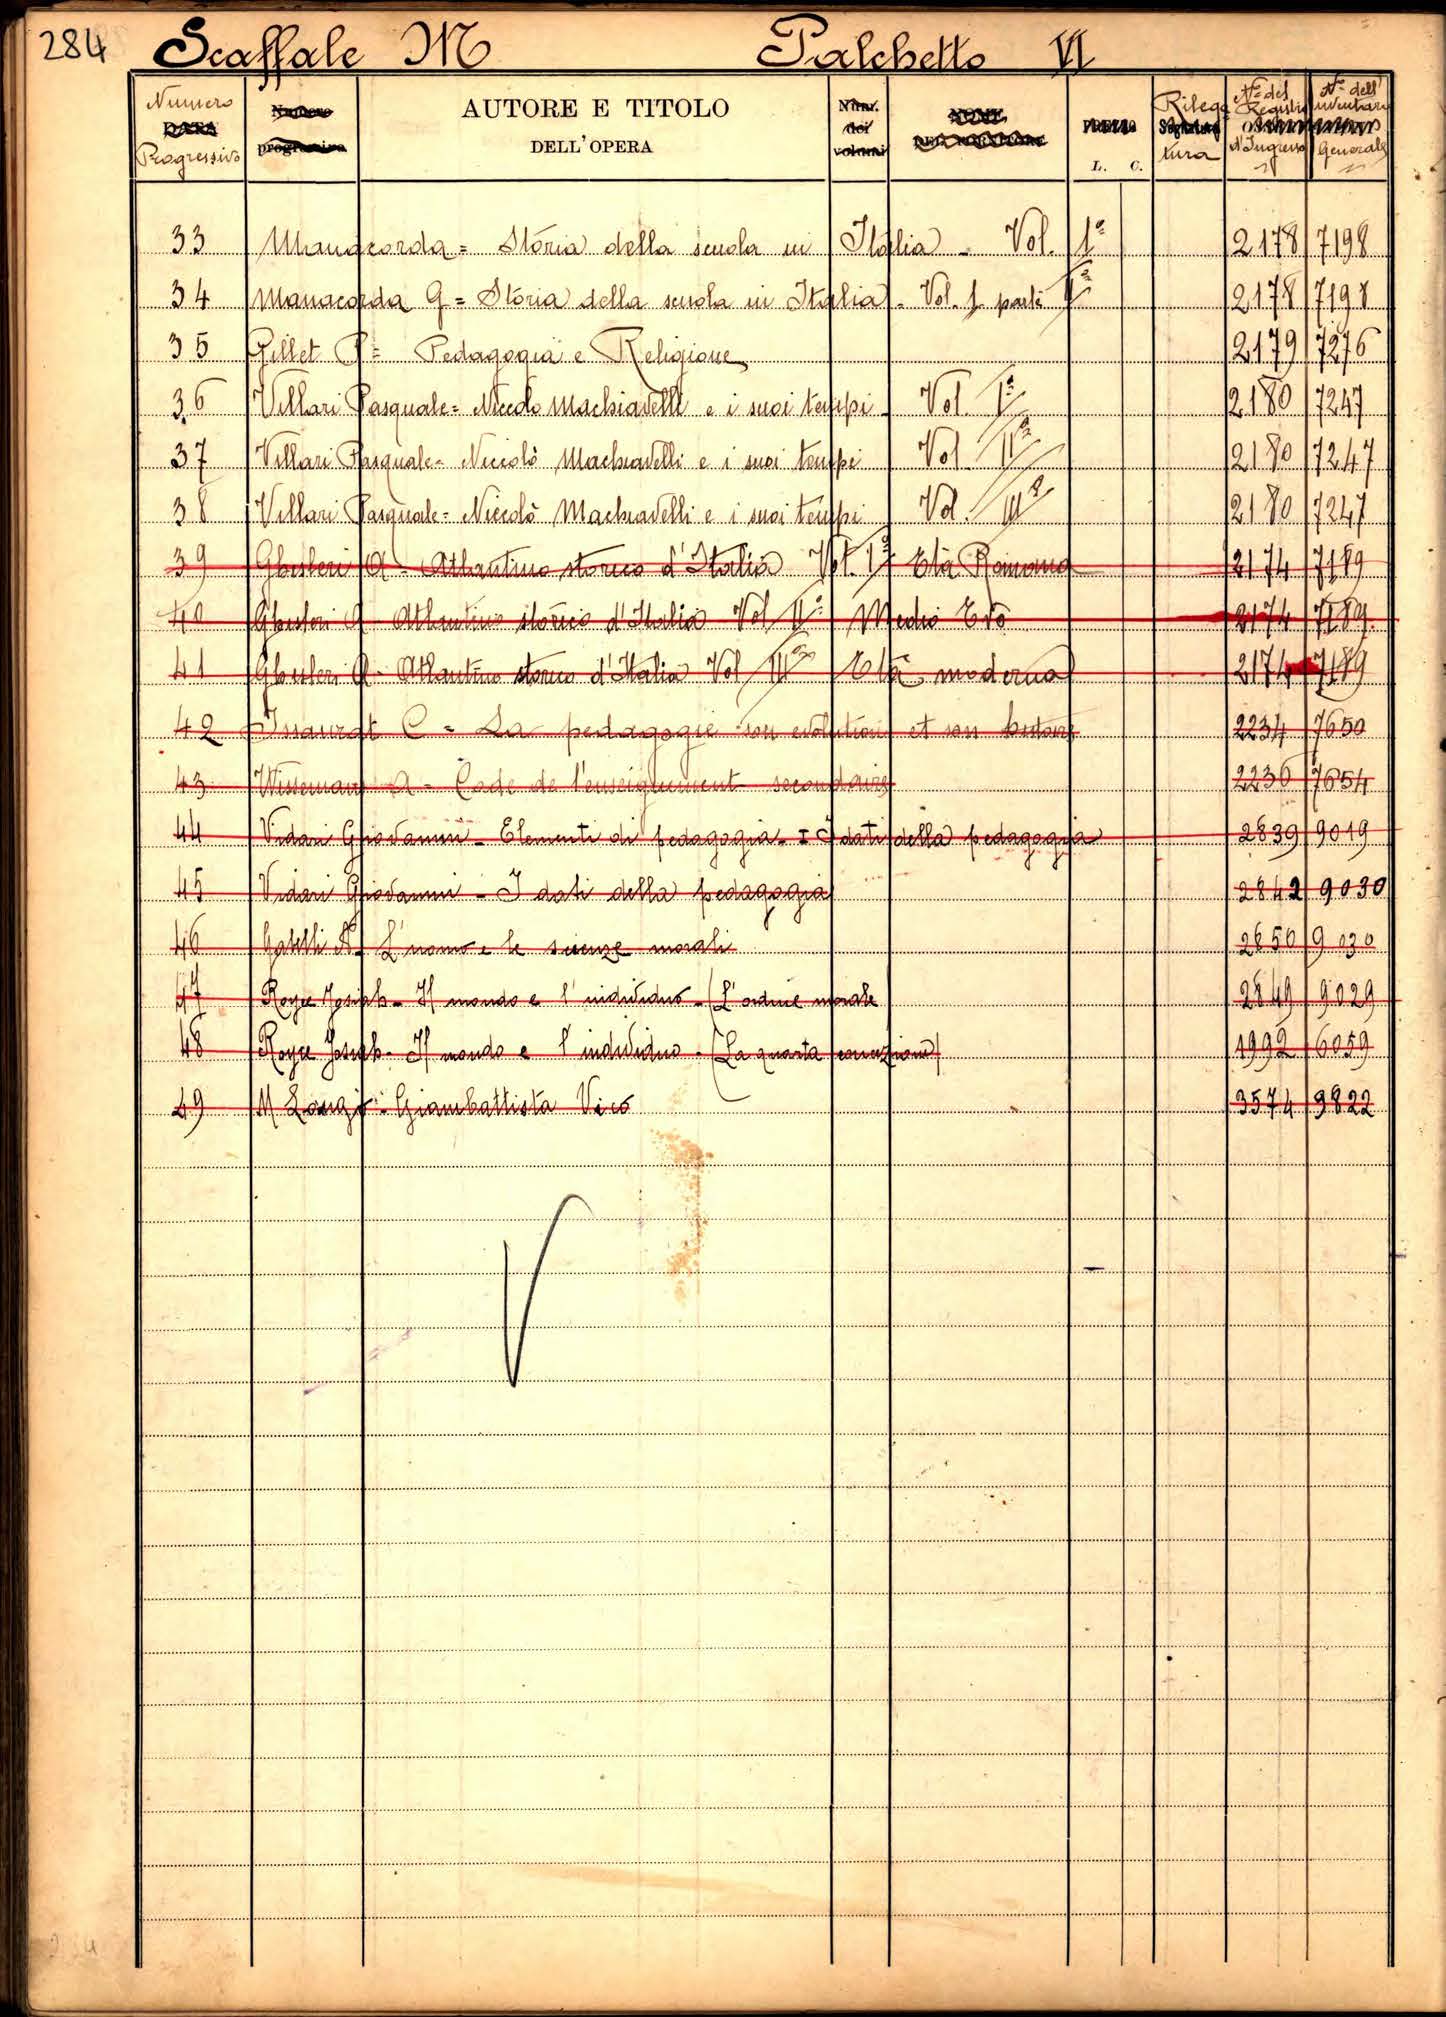 284 Scaffale M Palchetto VI
Numero Progressivo
AUTORE E TITOLO
DELL'OPERA
Num. dei volumi
PREZZO
L. C.
Rilegatura
N° del Registro d'Ingresso
N° dell'inventario Generale
33 Manacorda = Storia della scuola in Italia - Vol. 1° 2178 7198
34 Manacorda G = Storia della scuola in Italia - Vol. 1 parte IIa 2178 7198
35 Gillet P = Pedagogia e Religione 2179 7276
36 Villari Pasquale = Niccolo Machiavelli e i suoi tempi - Vol. I° 2180 7247
37 Villari Pasquale - Niccolò Machiavelli e i suoi tempi Vol. II° 2180 7247
38 Villari Pasquale = Niccolò Machiavelli e i suoi tempi Vol. III° 2180 7247
39 Ghisleri A - Atlantino storico d'Italia Vol. I° Età Romana 2174 7189
40 Ghisleri A - Atlantino storico d'Italia Vol II° Medio Evo 2174 7189
41 Ghisleri A - Atlantino storico d'Italia Vol III° Età moderna 2174 7189
42 Issaurat C = La pedagogie son evolution et son histoire 2234 7650
43 A - Code de l'enseignement secondaire 2236 7654
44 Vidari Giovanni - Elementi di pedagogia - I I dati della pedagogia 2839 9019
45 Vidari Giovanni - I dati della pedagogia 2842 9030
46 L'uomo e le scienze morali 2850 9030
47 Royce Josiah - Il mondo e l'individuo - (L'ordine morale 2849 9029
48 Royce Josiah - Il mondo e l'individuo - (La quarta concezione) 1992 6059
49 M Longo - Giambattista Vico 3574 9822